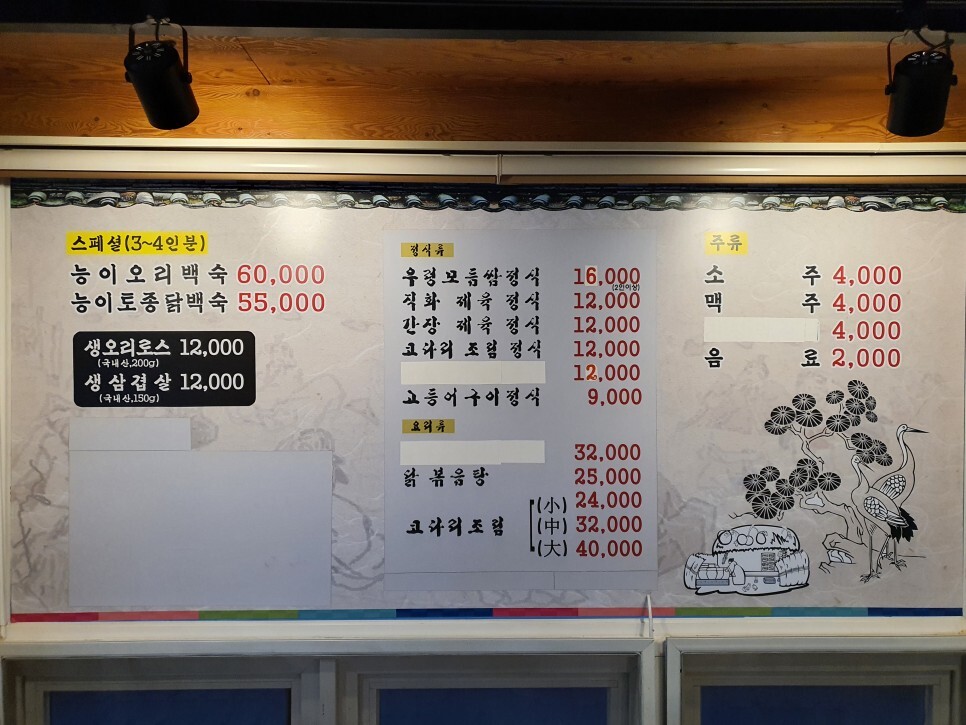 스페셜(3~4인분)
능이오리백숙 60,000
능이토종닭백숙 55,000
생오리로스 12,000
(국내산,200g)
생삼겹살 12,000
(국내산,150g)
정식류
우렁모듬쌈정식 16,000
(2인이상)
직화 제육 정식 12,000
간장 제육 정식 12,000
코다리 조림 정식 12,000
12,000
고등어구이정식 9,000
요리류
32,000
닭 볶음탕 25,000
코다리조림 (小) 24,000
(中) 32,000
(大) 40,000
주류
소 주 4,000
맥 주 4,000
4,000
음 료 2,000